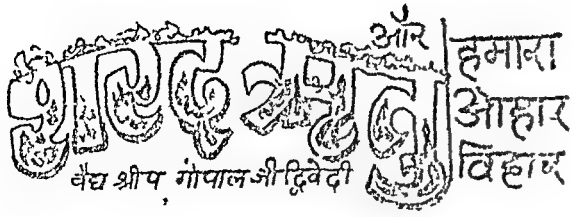 शरद् ऋतु और
हमारा
आहार
विहार
वैद्य श्रीप. गोपालजी द्विवेदी